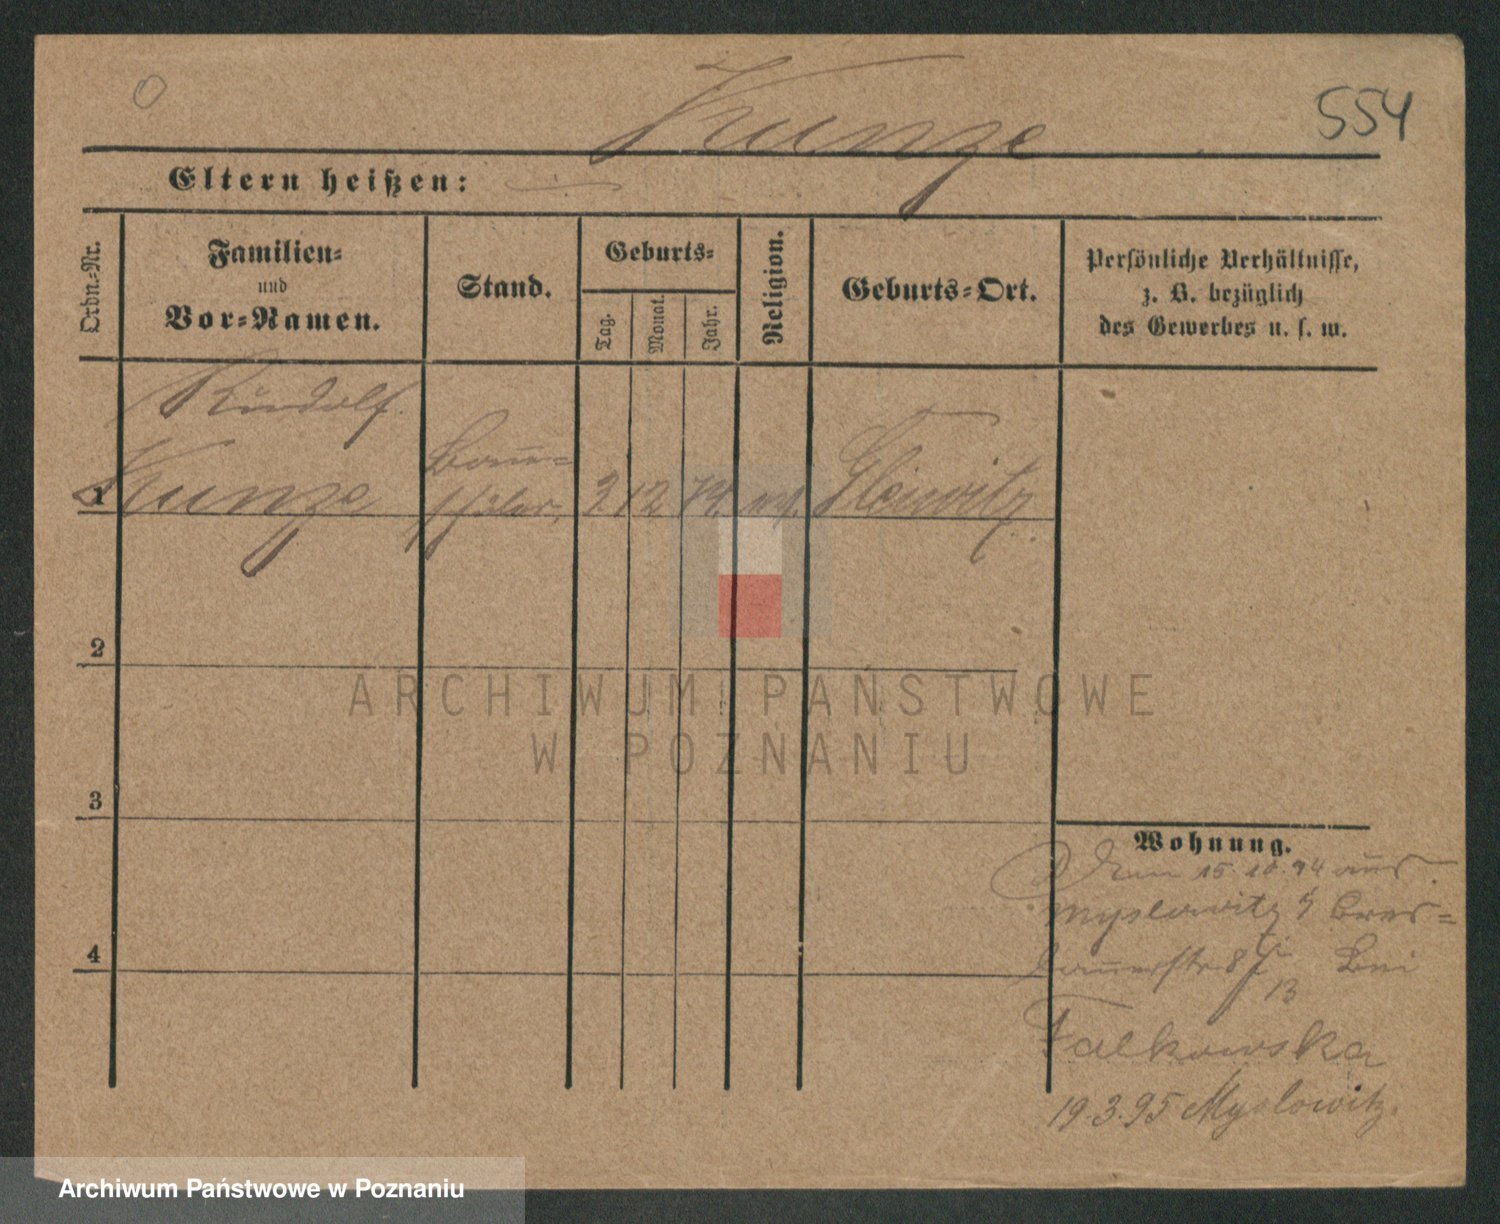 Kunze
554
Eltern heißen: —
Ordn.-Nr.
Familien-
und
Vor-Namen.
Stand.
Geburts-
Tag.
Monat.
Jahr.
Religion.
Geburts-Ort.
Persönliche Verhältnisse,
z. B. bezüglich
des Gewerbes u. s. w.
Rudolf
1 Kunze
Bau=
schüler. 3. 12 74. Gleiwitz
2
ARCHIWUM PAŃSTWOWE
W POZNANIU
3
4
Wohnung.
15.10.94 aus
Myslowitz Bres=
lauerstr 8 Bei
13
Falkowska
19.3.95 Myslowitz.
Archiwum Państwowe w Poznaniu